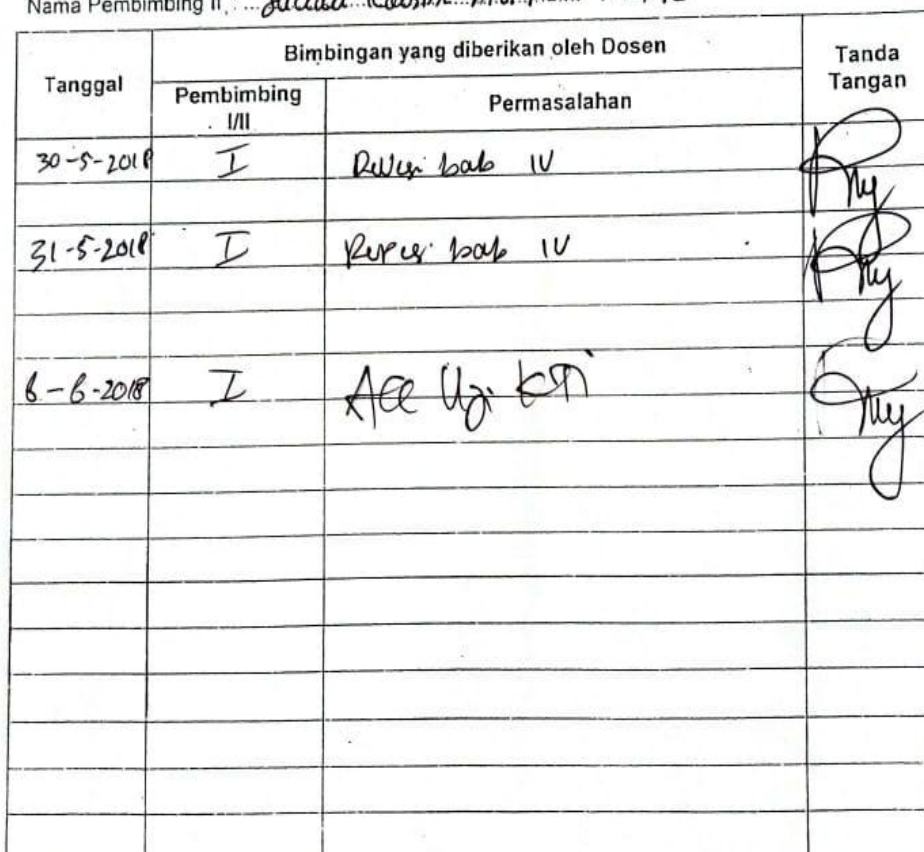 Nama Pembimbing II :
Bimbingan yang diberikan oleh Dosen
Tanggal
Pembimbing I/II
Permasalahan
Tanda Tangan
30-5-2018 I Revisi bab IV
31-5-2018 I Revisi bab IV
6-6-2018 I Acc Uji KTI